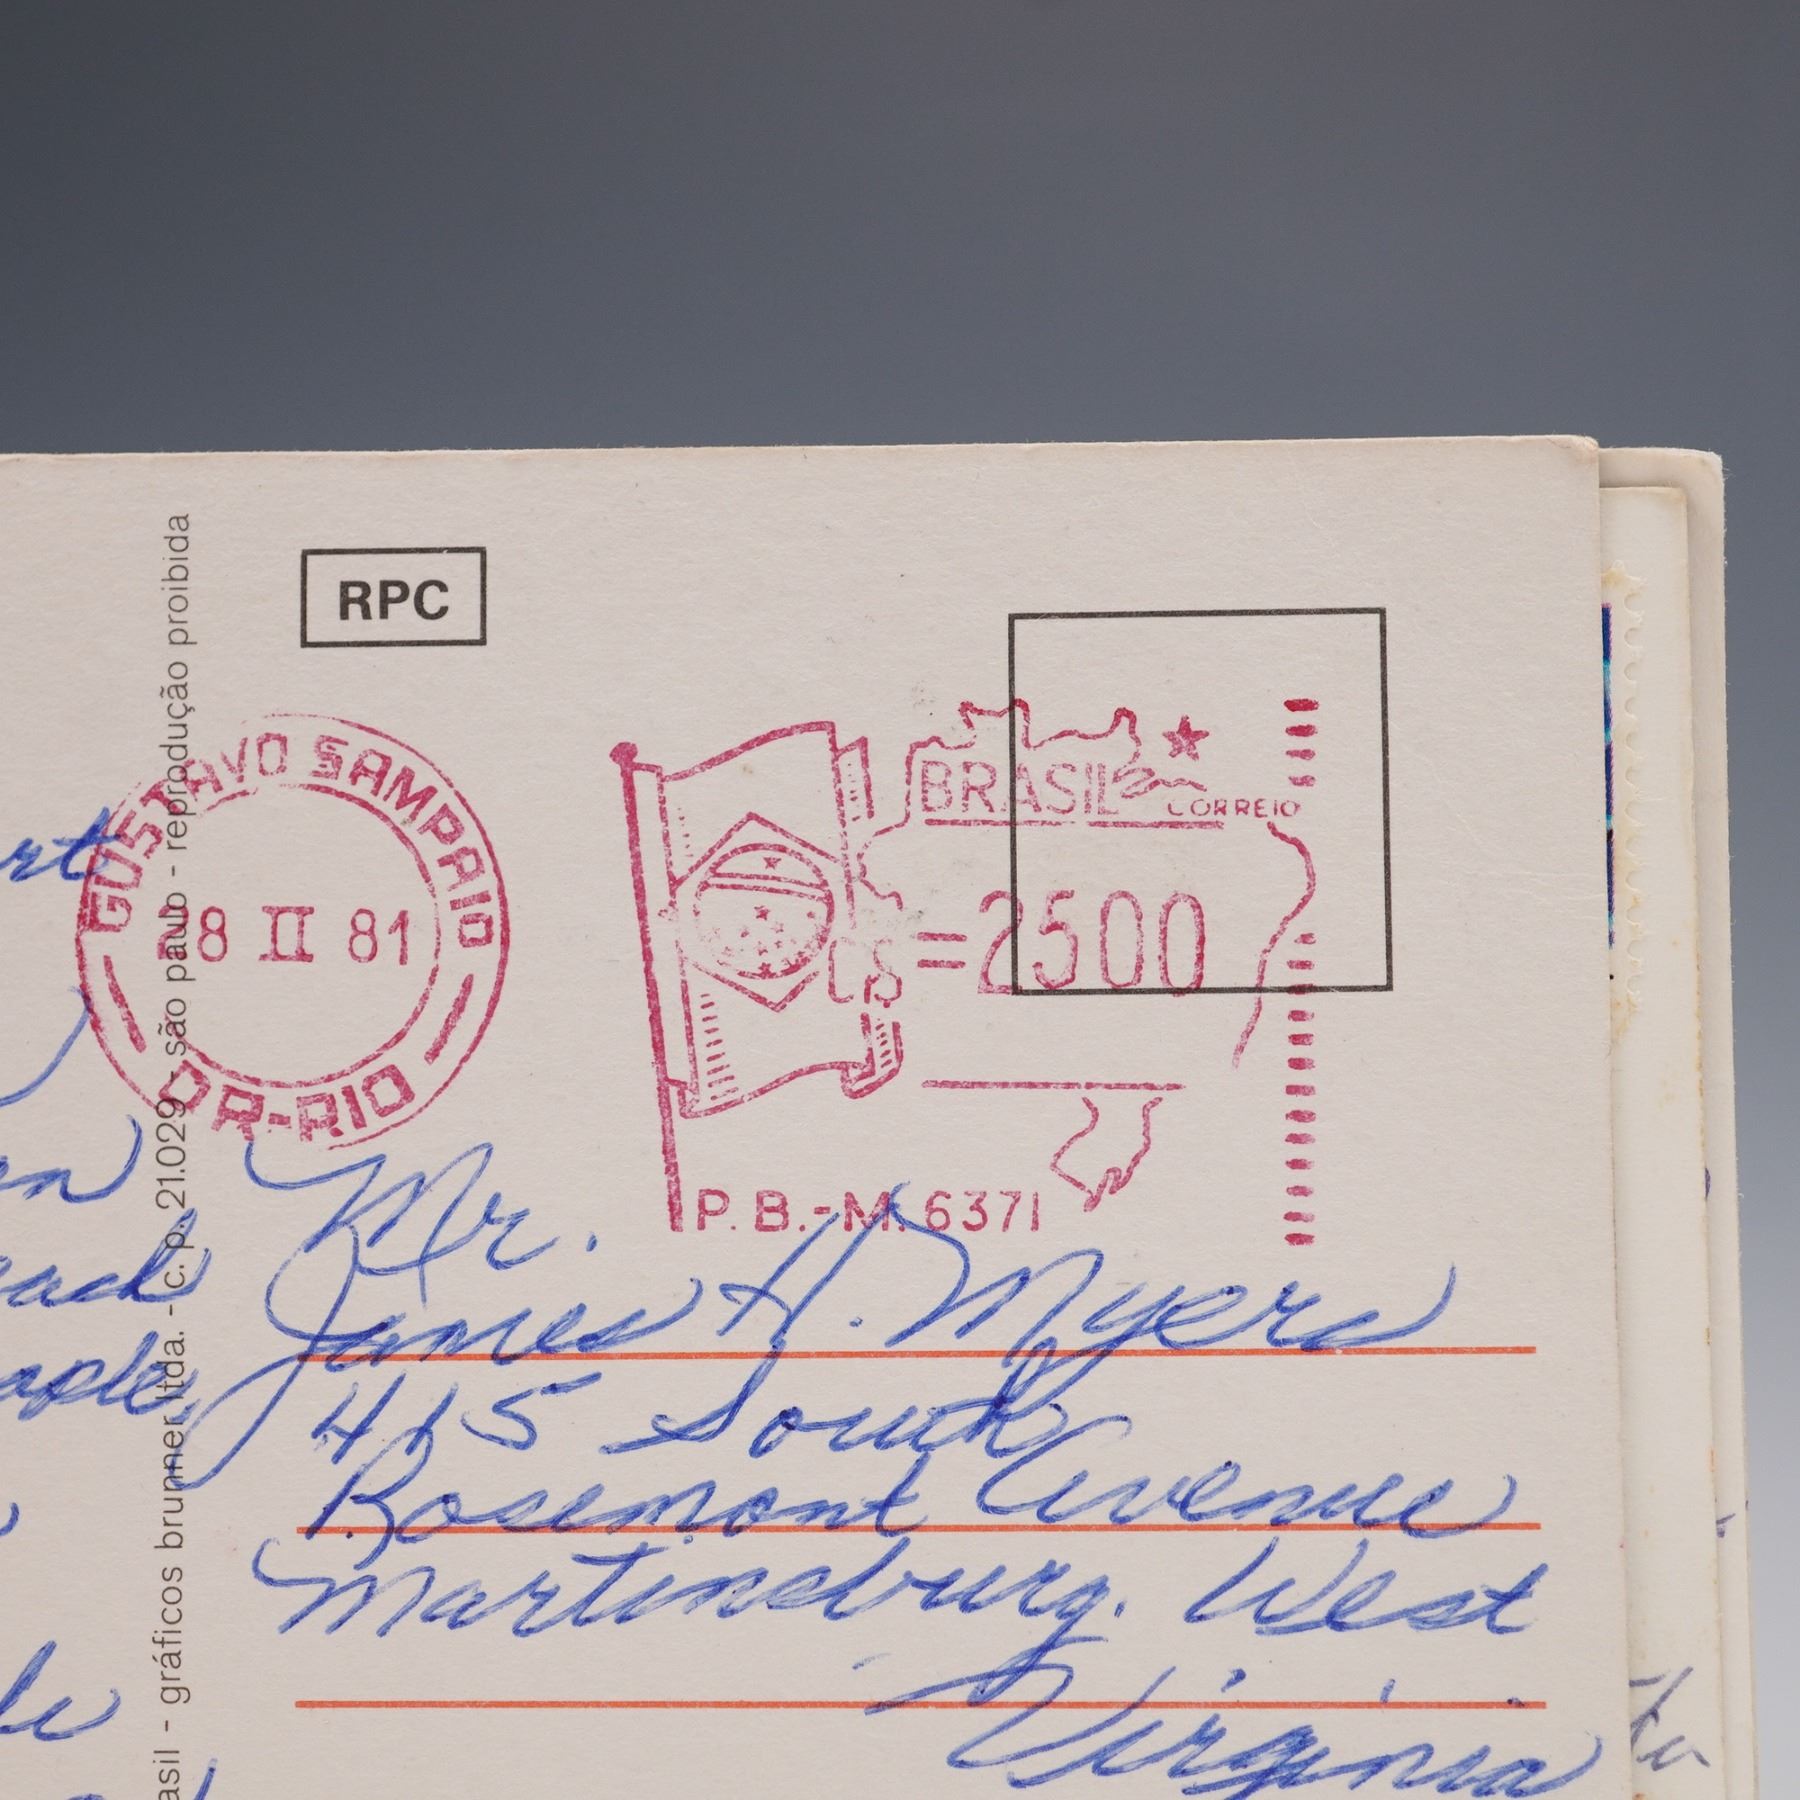 RPC
asil - gráficos brunner ltda. - c. p. 21.029 - são paulo - reprodução proibida
GUSTAVO SAMPAIO
8 II 81
DR-RIO
BRASIL CORREIO
C$ =2500
P. B.-M. 6371
Mr.
James H. Myers
415 South
Rosemont Avenue
Martinsburg. West
Virginia